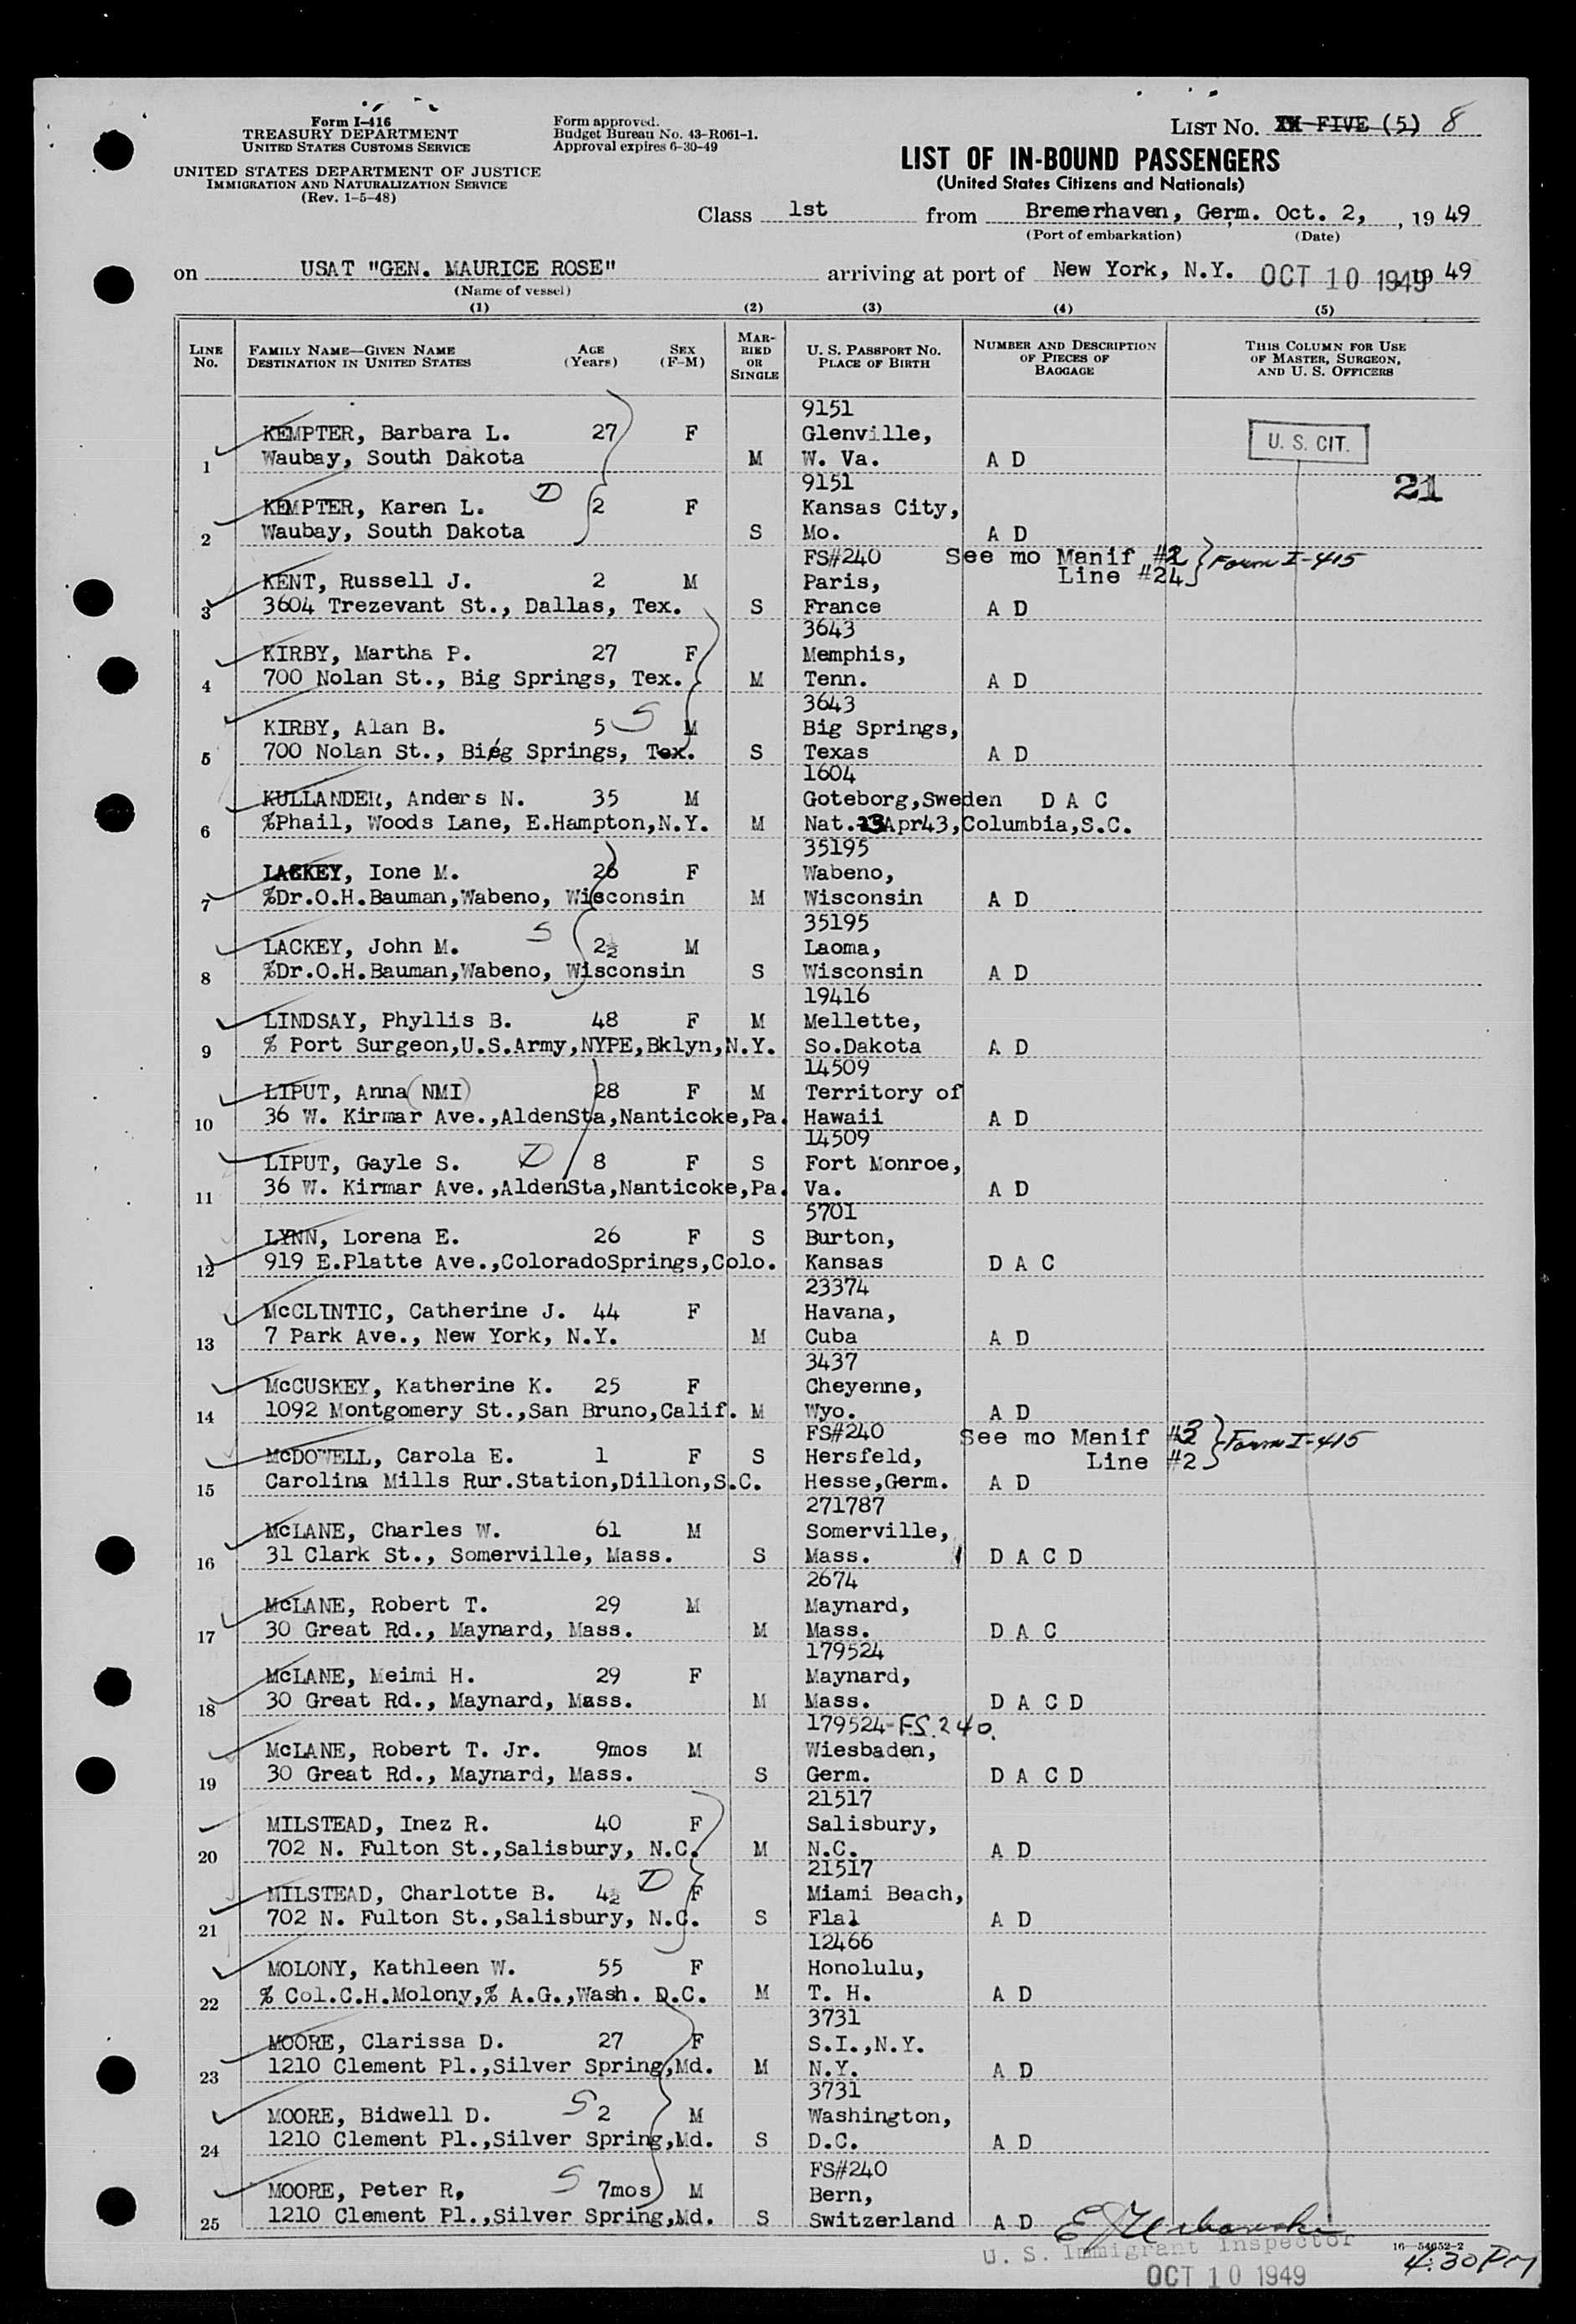 Form I-416
TREASURY DEPARTMENT
UNITED STATES CUSTOMS SERVICE
UNITED STATES DEPARTMENT OF JUSTICE
IMMIGRATION AND NATURALIZATION SERVICE
(Rev. 1-5-48)
Form approved.
Budget Bureau No. 43-R061-1.
Approval expires 6-30-49
LIST NO. FIVE (5) 8
LIST OF IN-BOUND PASSENGERS
(United States Citizens and Nationals)
Class 1st from Bremerhaven, Germ. Oct. 2, , 19 49
(Port of embarkation) (Date)
on USAT "GEN. MAURICE ROSE" arriving at port of New York, N.Y. OCT 10 1949 19 49
(Name of vessel)
(1) (2) (3) (4) (5)
LINE No. FAMILY NAME—GIVEN NAME DESTINATION IN UNITED STATES AGE (Years) SEX (F-M) MARRIED OR SINGLE U. S. PASSPORT NO. PLACE OF BIRTH NUMBER AND DESCRIPTION OF PIECES OF BAGGAGE THIS COLUMN FOR USE OF MASTER, SURGEON, AND U. S. OFFICERS
9151
KEMPTER, Barbara L. 27 F Glenville, U. S. CIT.
1 Waubay, South Dakota M W. Va. A D
9151 21
KEMPTER, Karen L. D 2 F Kansas City,
2 Waubay, South Dakota S Mo. A D
FS#240 See mo Manif #2 } Form I-415
KENT, Russell J. 2 M Paris, Line #24
3 3604 Trezevant St., Dallas, Tex. S France A D
3643
KIRBY, Martha P. 27 F Memphis,
4 700 Nolan St., Big Springs, Tex. M Tenn. A D
3643
KIRBY, Alan B. 5 S M Big Springs,
5 700 Nolan St., Bieg Springs, Tex. S Texas A D
1604
KULLANDER, Anders N. 35 M Goteborg,Sweden D A C
6 %Phail, Woods Lane, E.Hampton,N.Y. M Nat.23Apr43,Columbia,S.C.
35195
LACKEY, Ione M. 26 F Wabeno,
7 %Dr.O.H.Bauman,Wabeno, Wisconsin M Wisconsin A D
35195
LACKEY, John M. S 2½ M Laoma,
8 %Dr.O.H.Bauman,Wabeno, Wisconsin S Wisconsin A D
19416
LINDSAY, Phyllis B. 48 F M Mellette,
9 % Port Surgeon,U.S.Army,NYPE,Bklyn,N.Y. So.Dakota A D
14509
LIPUT, Anna (NMI) 28 F M Territory of
10 36 W. Kirmar Ave.,AldenSta,Nanticoke,Pa. Hawaii A D
14509
LIPUT, Gayle S. D 8 F S Fort Monroe,
11 36 W. Kirmar Ave.,AldenSta,Nanticoke,Pa. Va. A D
5701
LYNN, Lorena E. 26 F S Burton,
12 919 E.Platte Ave.,ColoradoSprings,Colo. Kansas D A C
23374
McCLINTIC, Catherine J. 44 F Havana,
13 7 Park Ave., New York, N.Y. M Cuba A D
3437
McCUSKEY, Katherine K. 25 F Cheyenne,
14 1092 Montgomery St.,San Bruno,Calif. M Wyo. A D
FS#240 See mo Manif #2 } Form I-415
McDOWELL, Carola E. 1 F S Hersfeld, Line #2
15 Carolina Mills Rur.Station,Dillon,S.C. Hesse,Germ. A D
271787
McLANE, Charles W. 61 M Somerville,
16 31 Clark St., Somerville, Mass. S Mass. D A C D
2674
McLANE, Robert T. 29 M Maynard,
17 30 Great Rd., Maynard, Mass. M Mass. D A C
179524
McLANE, Meimi H. 29 F Maynard,
18 30 Great Rd., Maynard, Mass. M Mass. D A C D
179524-F.S. 240.
McLANE, Robert T. Jr. 9mos M Wiesbaden,
19 30 Great Rd., Maynard, Mass. S Germ. D A C D
21517
MILSTEAD, Inez R. 40 F Salisbury,
20 702 N. Fulton St.,Salisbury, N.C. M N.C. A D
21517
MILSTEAD, Charlotte B. 4½ D F Miami Beach,
21 702 N. Fulton St.,Salisbury, N.C. S Flal A D
12466
MOLONY, Kathleen W. 55 F Honolulu,
22 % Col.C.H.Molony,% A.G.,Wash. D.C. M T. H. A D
3731
MOORE, Clarissa D. 27 F S.I.,N.Y.
23 1210 Clement Pl.,Silver Spring,Md. M N.Y. A D
3731
MOORE, Bidwell D. S 2 M Washington,
24 1210 Clement Pl.,Silver Spring,Md. S D.C. A D
FS#240
MOORE, Peter R, S 7mos M Bern,
25 1210 Clement Pl.,Silver Spring,Md. S Switzerland A D
U. S. Immigrant Inspector 16—54652-2
OCT 10 1949 4:30 PM